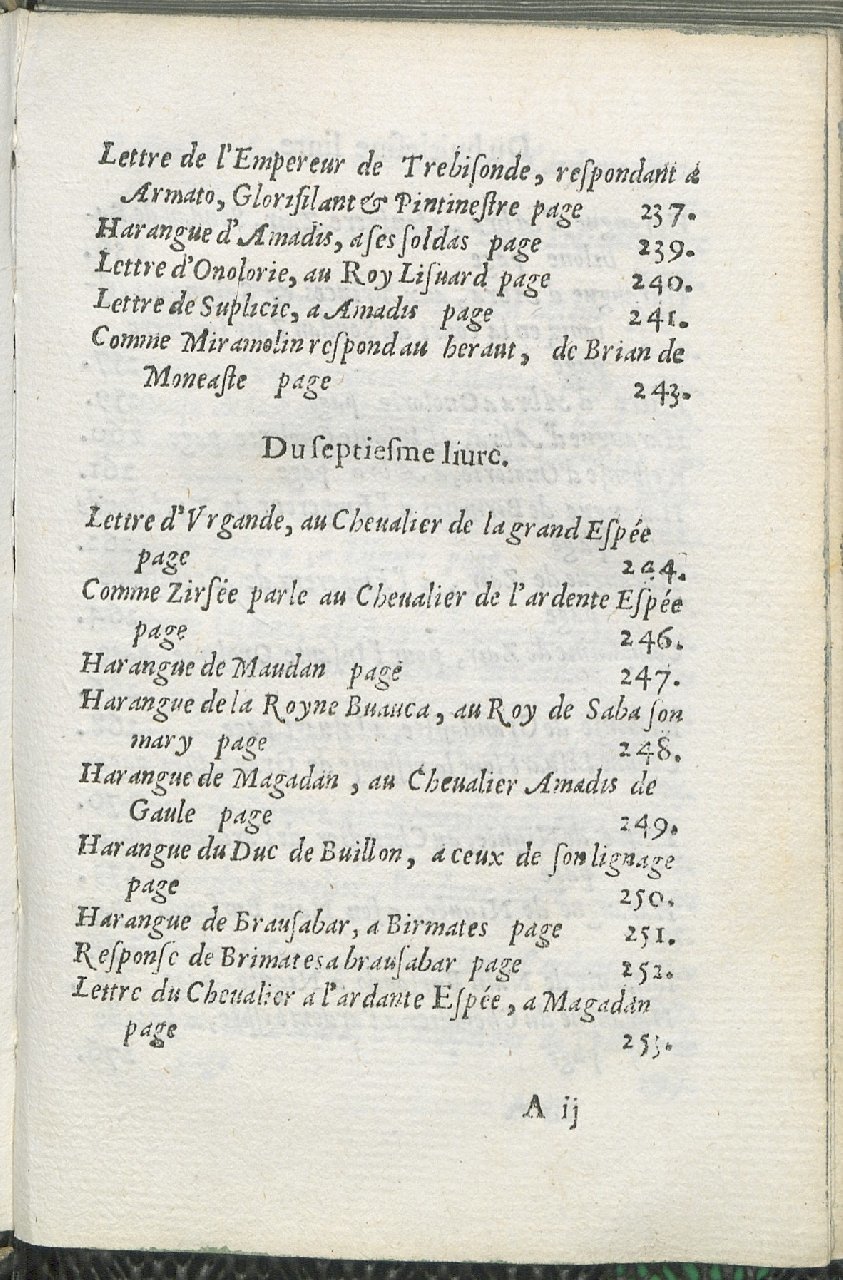 Lettre de l'Empereur de Trebiſonde, reſpondant a
Armato, Gloriſilant & Pintineſtre page 237.
Harangue d'Amadis, a ses ſoldas page 239.
Lettre d'Onolorie, au Roy Liſuard page 240.
Lettre de Suplicie, a Amadis page 241.
Comme Miramolin reſpond au heraut, de Brian de
Moneaſte page 243.
Du ſeptieſme liure.
Lettre d'Vrgande, au Cheualier de la grand Eſpée
page 244.
Comme Zirfée parle au Cheualier de l'ardente Eſpée
page 246.
Harangue de Maudan page 247.
Harangue de la Royne Buauca, au Roy de Saba ſon
mary page 248.
Harangue de Magadan, au Cheualier Amadis de
Gaule page 249.
Harangue du Duc de Buillon, a ceux de ſon lignage
page 250.
Harangue de Brauſabar, a Birmates page 251.
Reſponſe de Brimates a brauſabar page 252.
Lettre du Cheualier a l'ardante Eſpée, a Magadan
page 253.
A ij